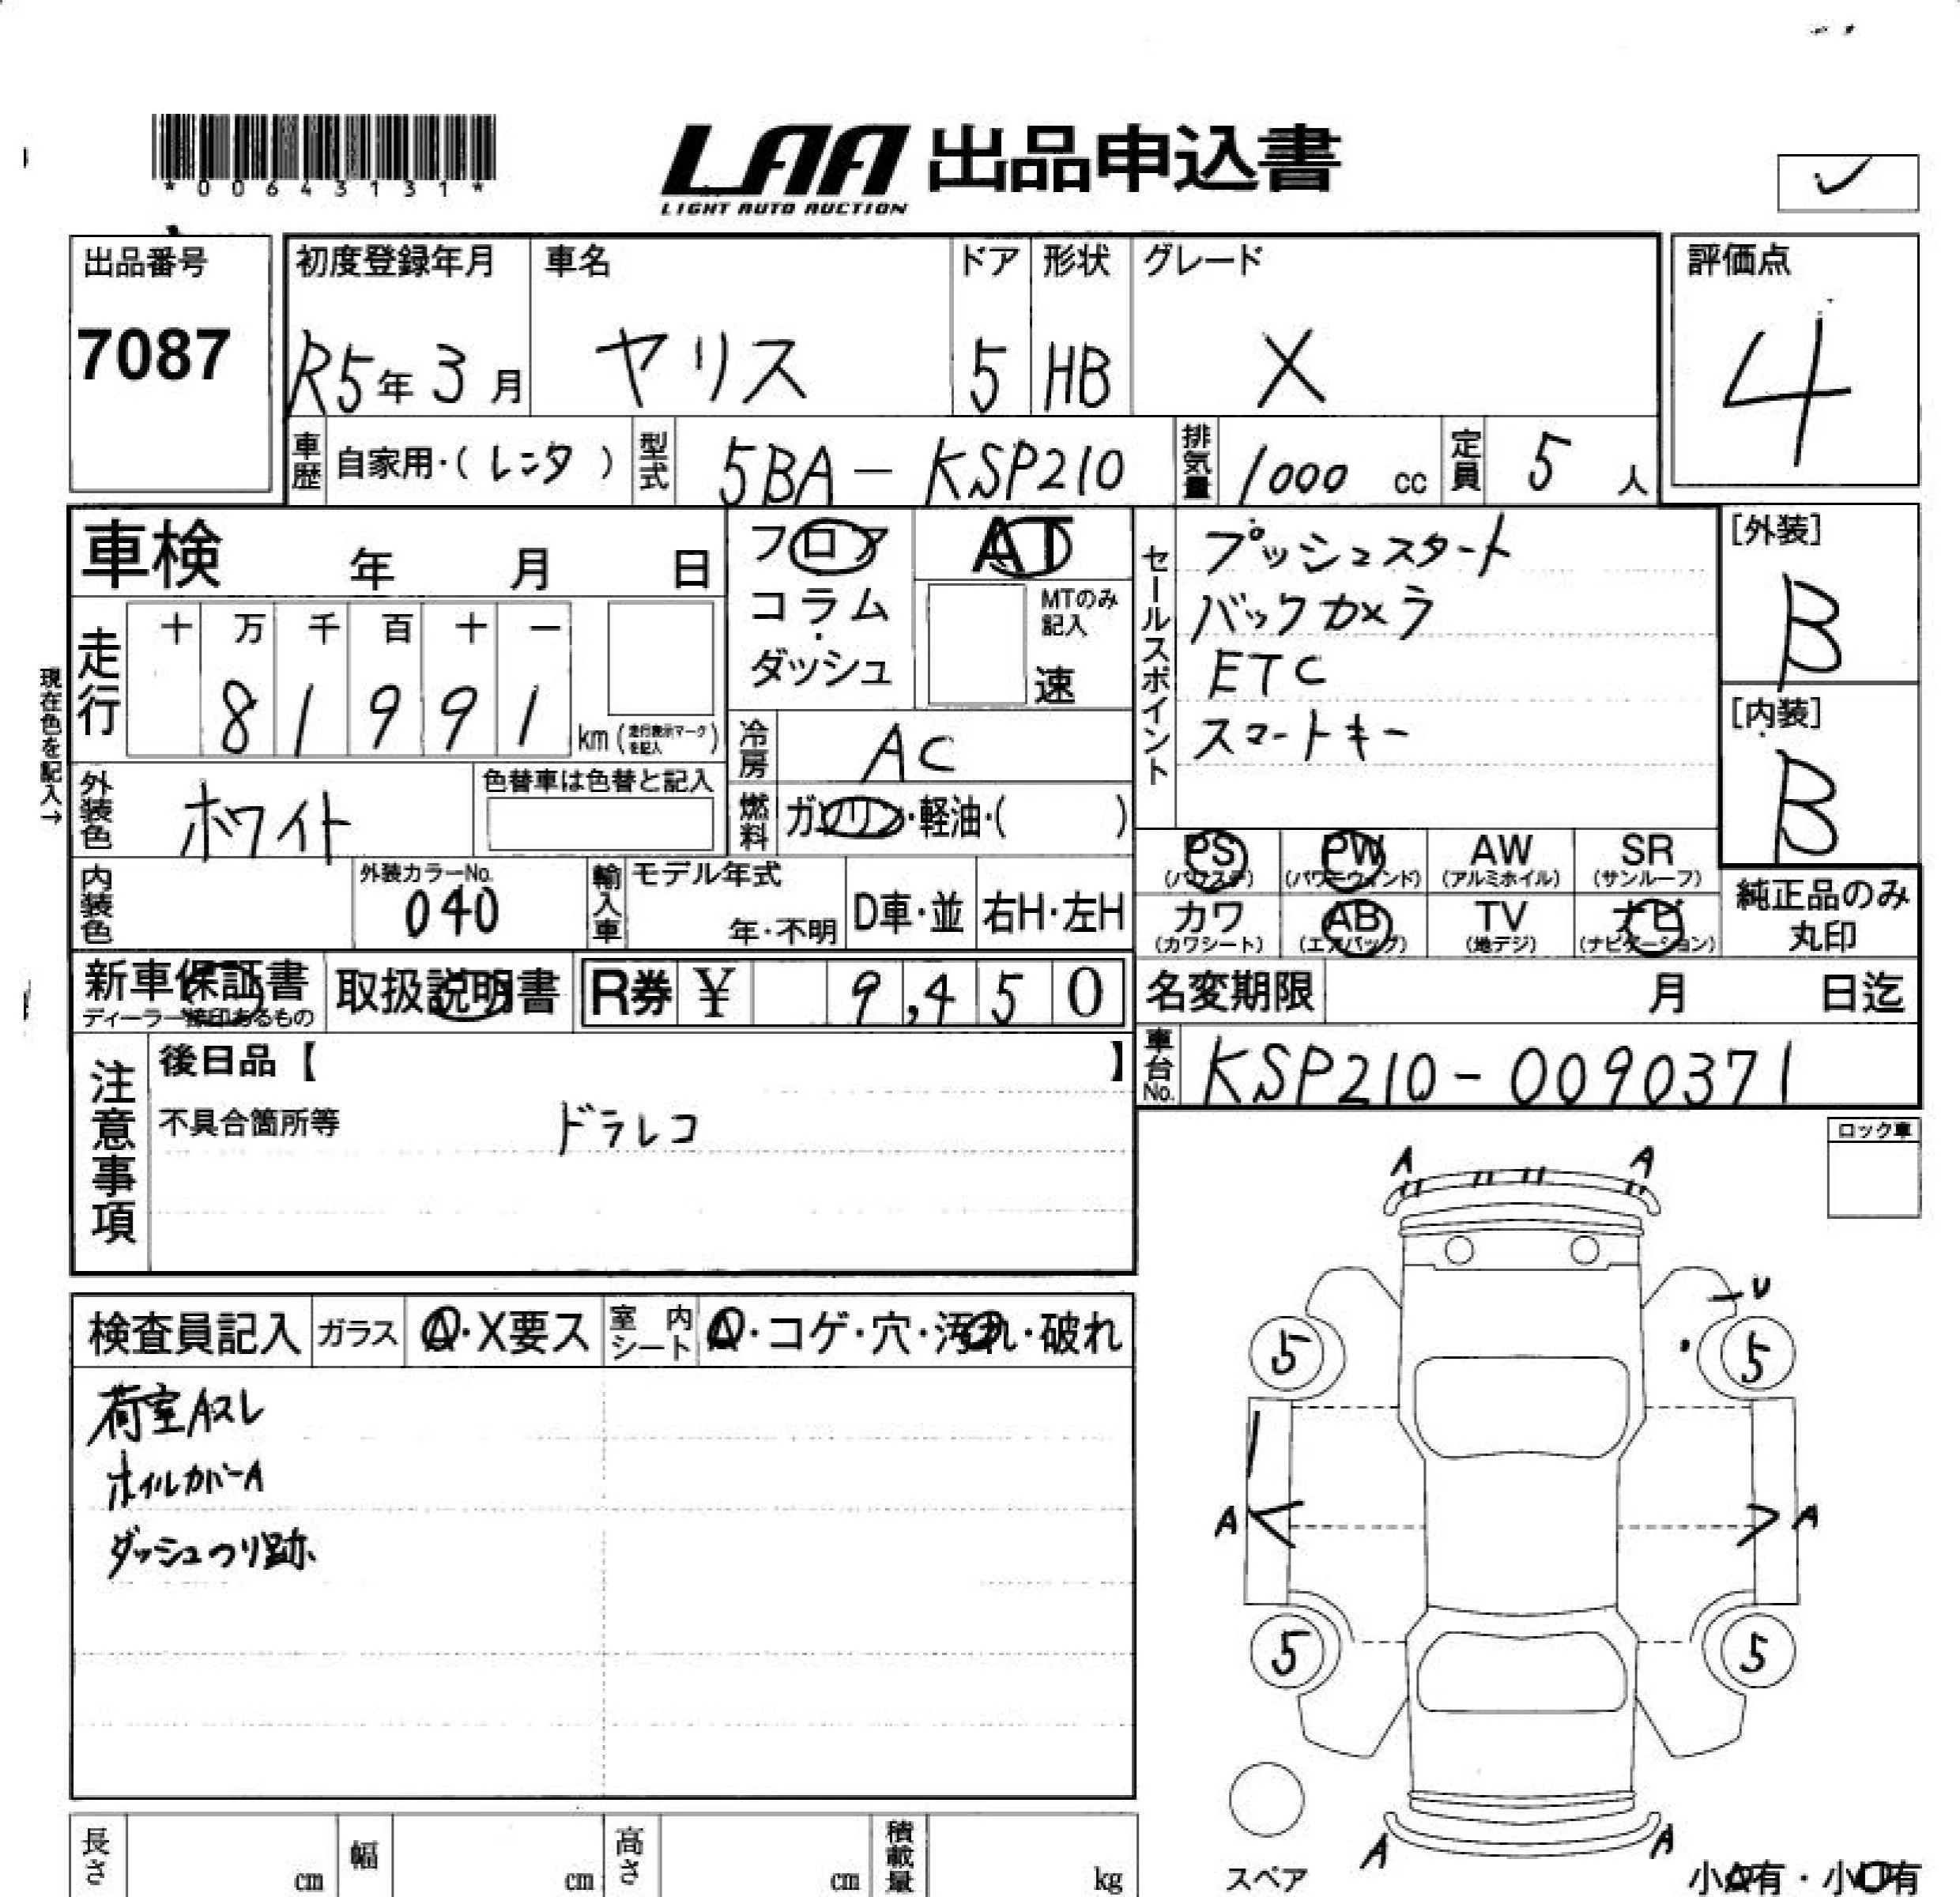 *00643131*
LAA 出品申込書
LIGHT AUTO AUCTION
出品番号
7087
初度登録年月
R5年3月
車名
ヤリス
ドア
5
形状
HB
グレード
X
評価点
4
車歴
自家用・(レンタ)
型式
5BA-KSP210
排気量
1000 cc
定員
5人
車検 年 月 日
フロア
コラム
・
ダッシュ
AT
MTのみ記入
速
セールスポイント
プッシュスタート
バックカメラ
ETC
スマートキー
[外装]
B
[内装]
B
現在色を記入→
走行
十 万 千 百 十 一
8 1 9 9 1
km (走行表示マークを記入)
冷房
AC
燃料
ガソリン・軽油・( )
外装色
ホワイト
色替車は色替と記入
内装色
外装カラーNo.
040
輸入車
モデル年式
年・不明
D車・並
右H・左H
PS
(パワステ)
PW
(パワーウィンド)
AW
(アルミホイル)
SR
(サンルーフ)
カワ
(カワシート)
AB
(エアバッグ)
TV
(地デジ)
ナビ
(ナビゲーション)
純正品のみ
丸印
新車保証書
ディーラー捺印あるもの
取扱説明書
R券 ¥ 9,450
名変期限 月 日迄
車台No.
KSP210-0090371
注意事項
後日品【 】
不具合箇所等
ドラレコ
ロック車
検査員記入
ガラス
A・X要ス
室内シート
A・コゲ・穴・汚れ・破れ
荷室Aスレ
ホイルカバーA
ダッシュつり跡
A A
U
5 5
A A
5 5
A A
スペア
小A有・小U有
長さ cm
幅 cm
高さ cm
積載量 kg